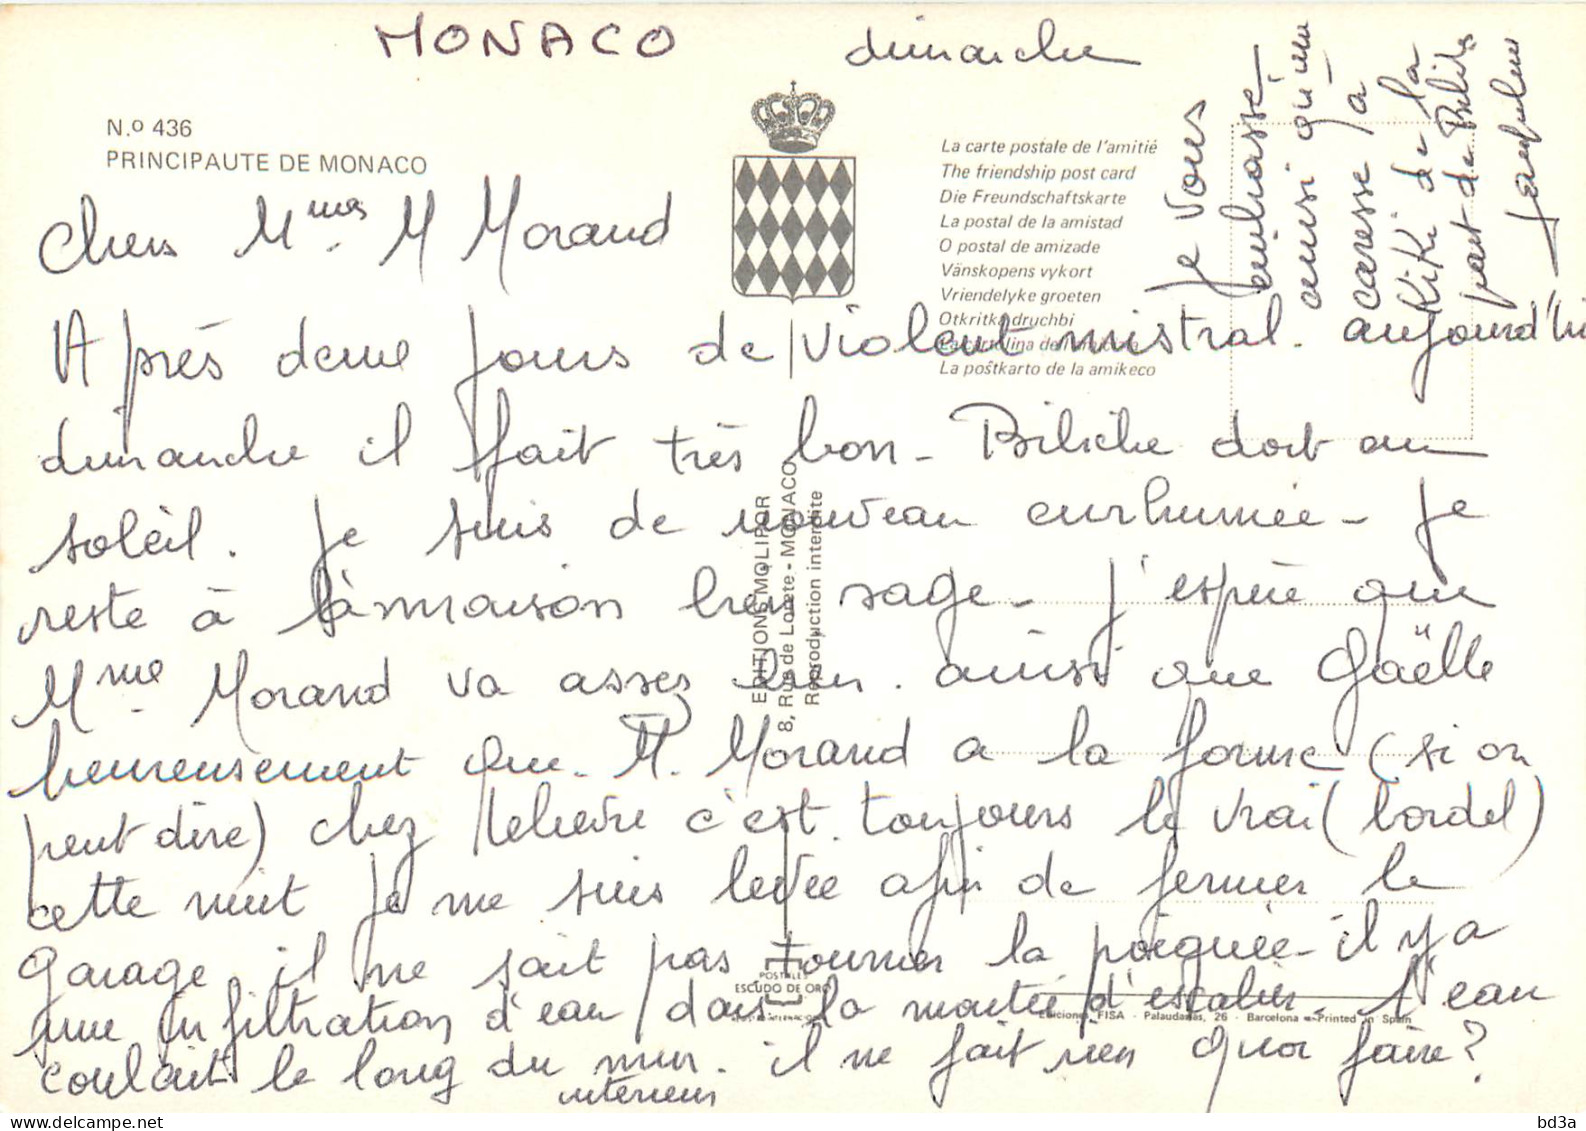 MONACO dimanche
N.º 436
PRINCIPAUTE DE MONACO
La carte postale de l'amitié
The friendship post card
Die Freundschaftskarte
La postal de la amistad
O postal de amizade
Vänskopens vykort
Vriendelyke groeten
Otkritka druchbi
La cartolina dell'amicizia
La poŝtkarto de la amikeco
Chers Mmes M Morand
Après deux jours de violent mistral. aujourd'hui
dimanche il fait très bon - Biliche dort au
soleil. Je suis de nouveau enrhumée - Je
reste à la maison bien sage - J'espère que
Mme Morand va assez bien. ainsi que Gaëlle
heureusement que M. Morand a la forme (si on
peut dire) chez Lelievre c'est toujours le vrai (bordel)
cette nuit je me suis levée afin de fermer le
Garage il ne sait pas tourner la poignée - il y a
une infiltration d'eau dans la montée d'escalier - l'eau
coulait le long du mur. il ne fait rien quoi faire?
interieur
Je vous
embrasse -
ainsi qu'une
caresse à
KiKi de la
part de Biliche
EDITIONS MOLIPOR
8, Rue de Lorete - MONACO
Reproduction interdite
POSTALES
ESCUDO DE ORO
Ediciones FISA - Palaudarias, 26 - Barcelona - Printed in Spain
https://www.delcampe.net
bd3a